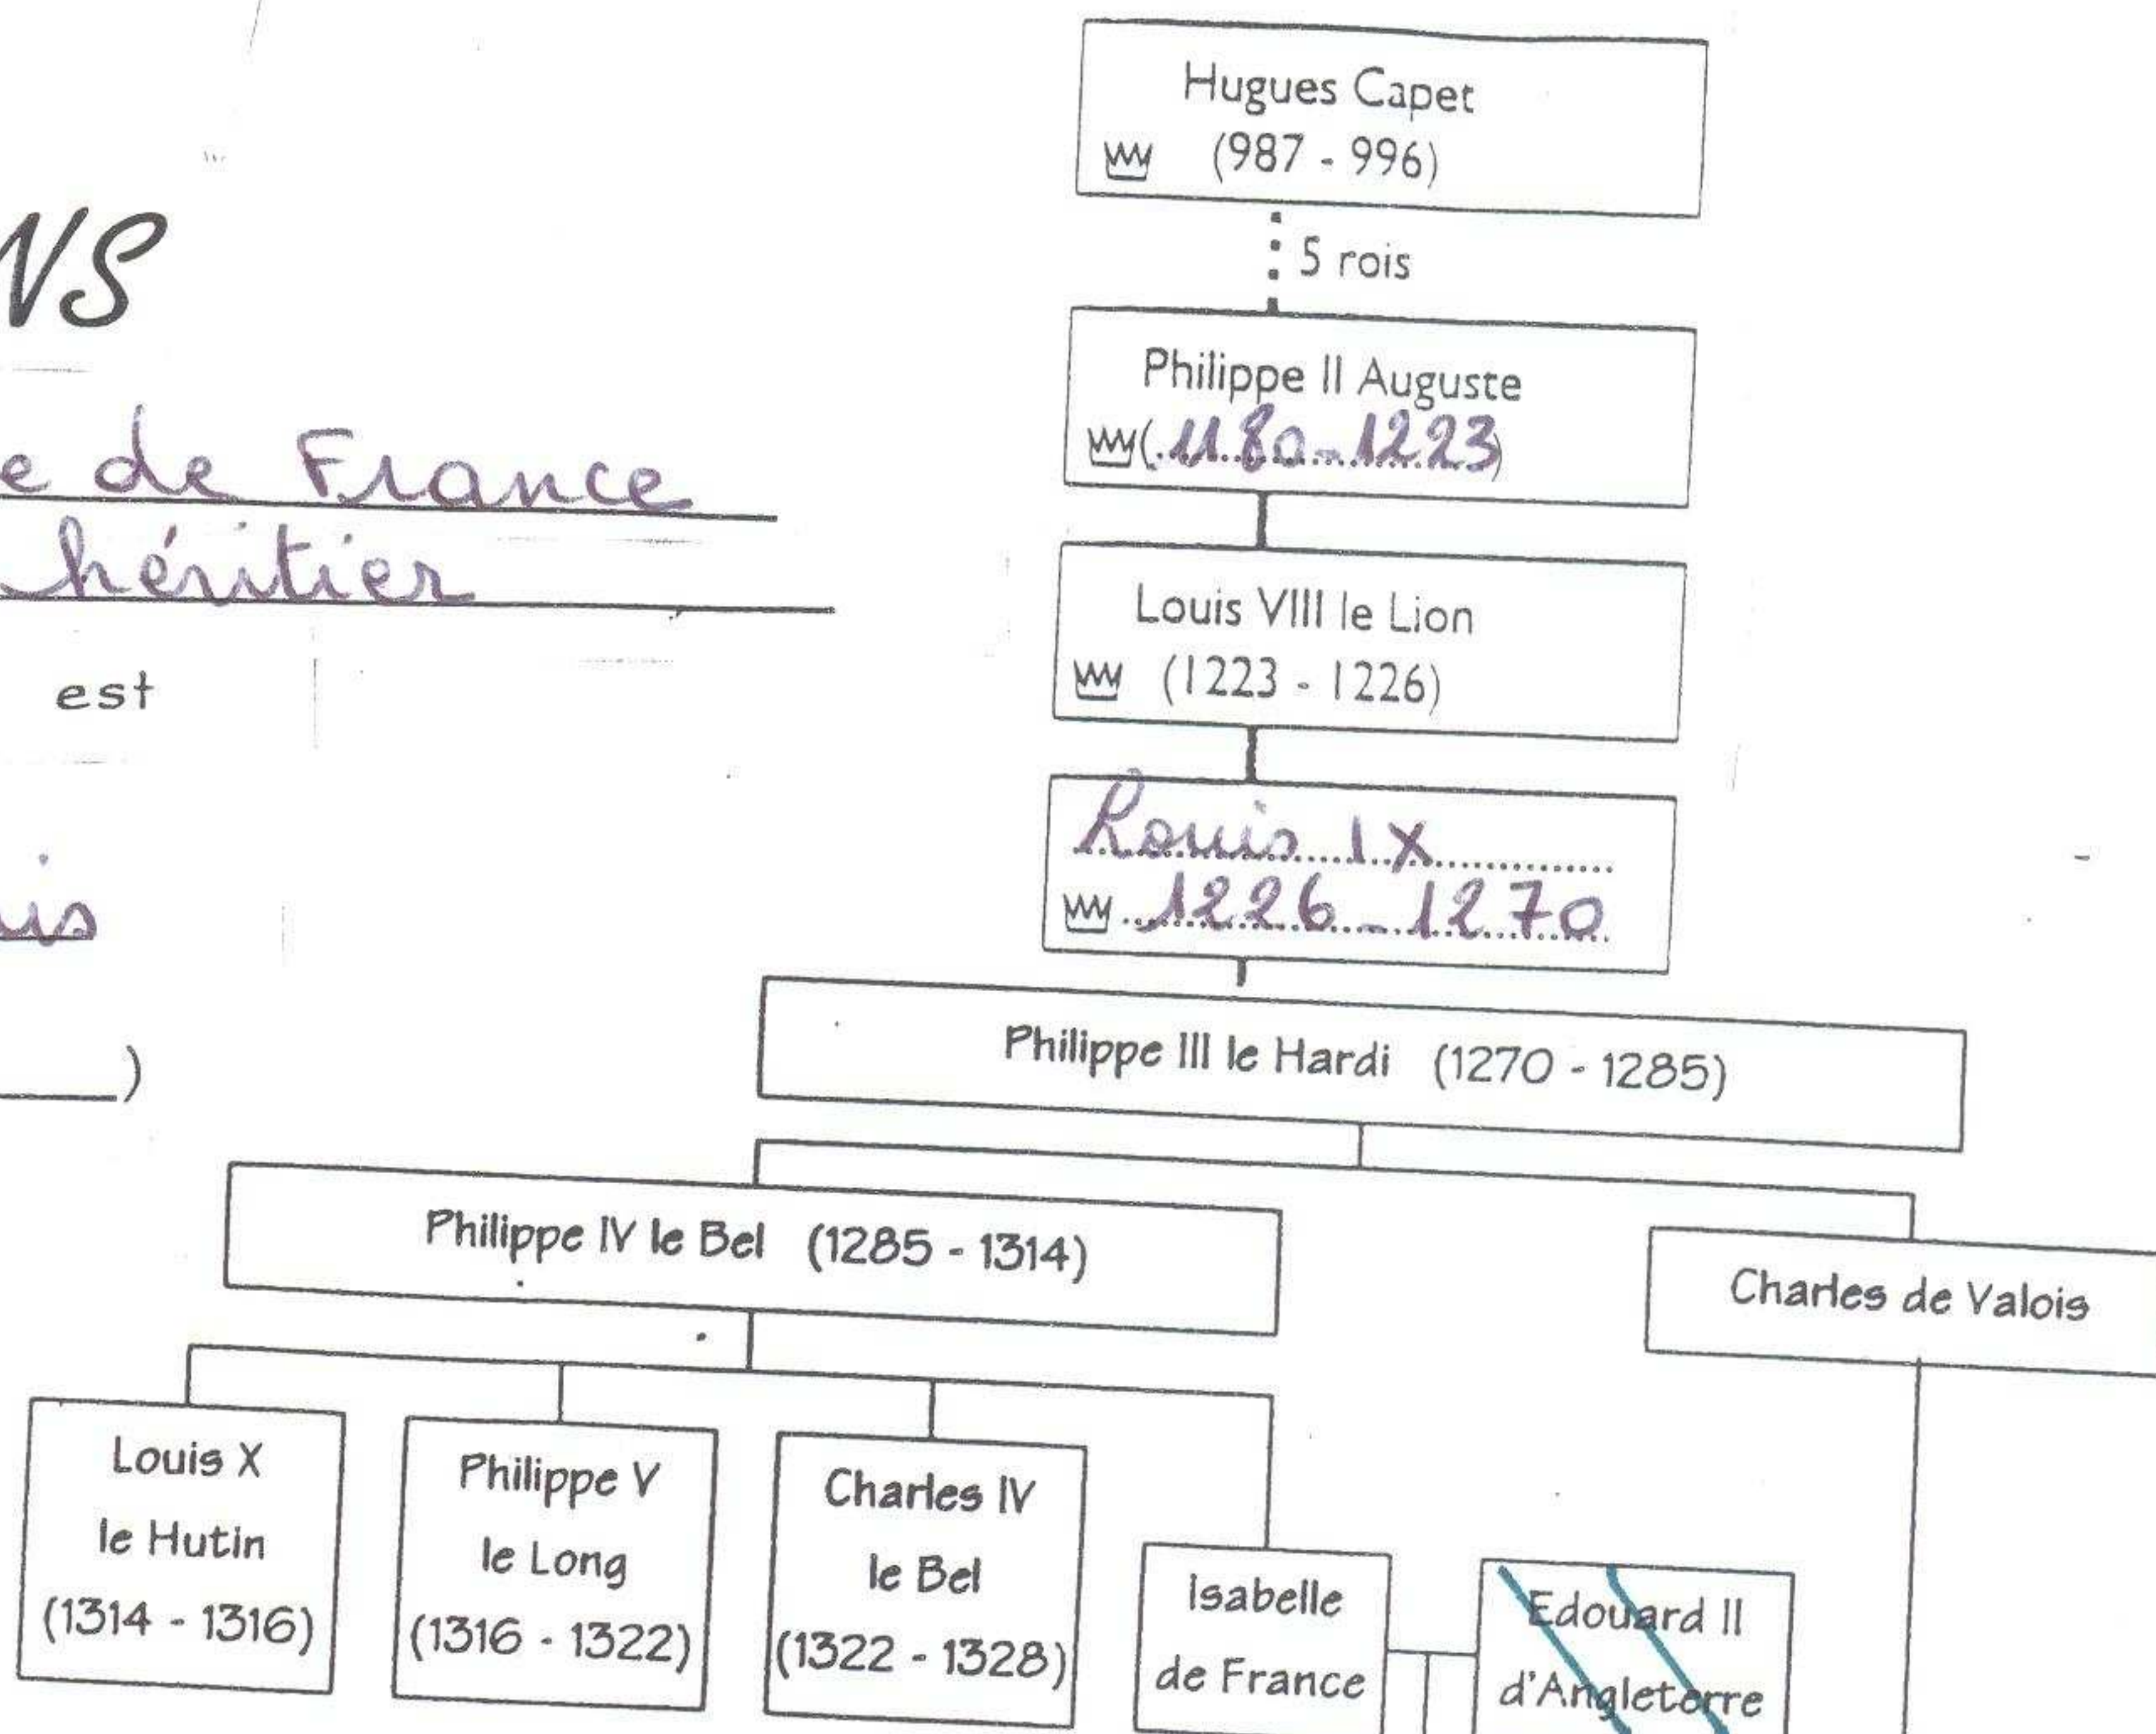 Hugues Capet
(987 - 996)
5 rois
NS
Philippe II Auguste
(1180-1223)
e de France
héritier
Louis VIII le Lion
(1223 - 1226)
est
Louis IX
1226-1270
is
)
Philippe III le Hardi (1270 - 1285)
Philippe IV le Bel (1285 - 1314)
Charles de Valois
Louis X
le Hutin
(1314 - 1316)
Philippe V
le Long
(1316 - 1322)
Charles IV
le Bel
(1322 - 1328)
Isabelle
de France
Edouard II
d'Angleterre